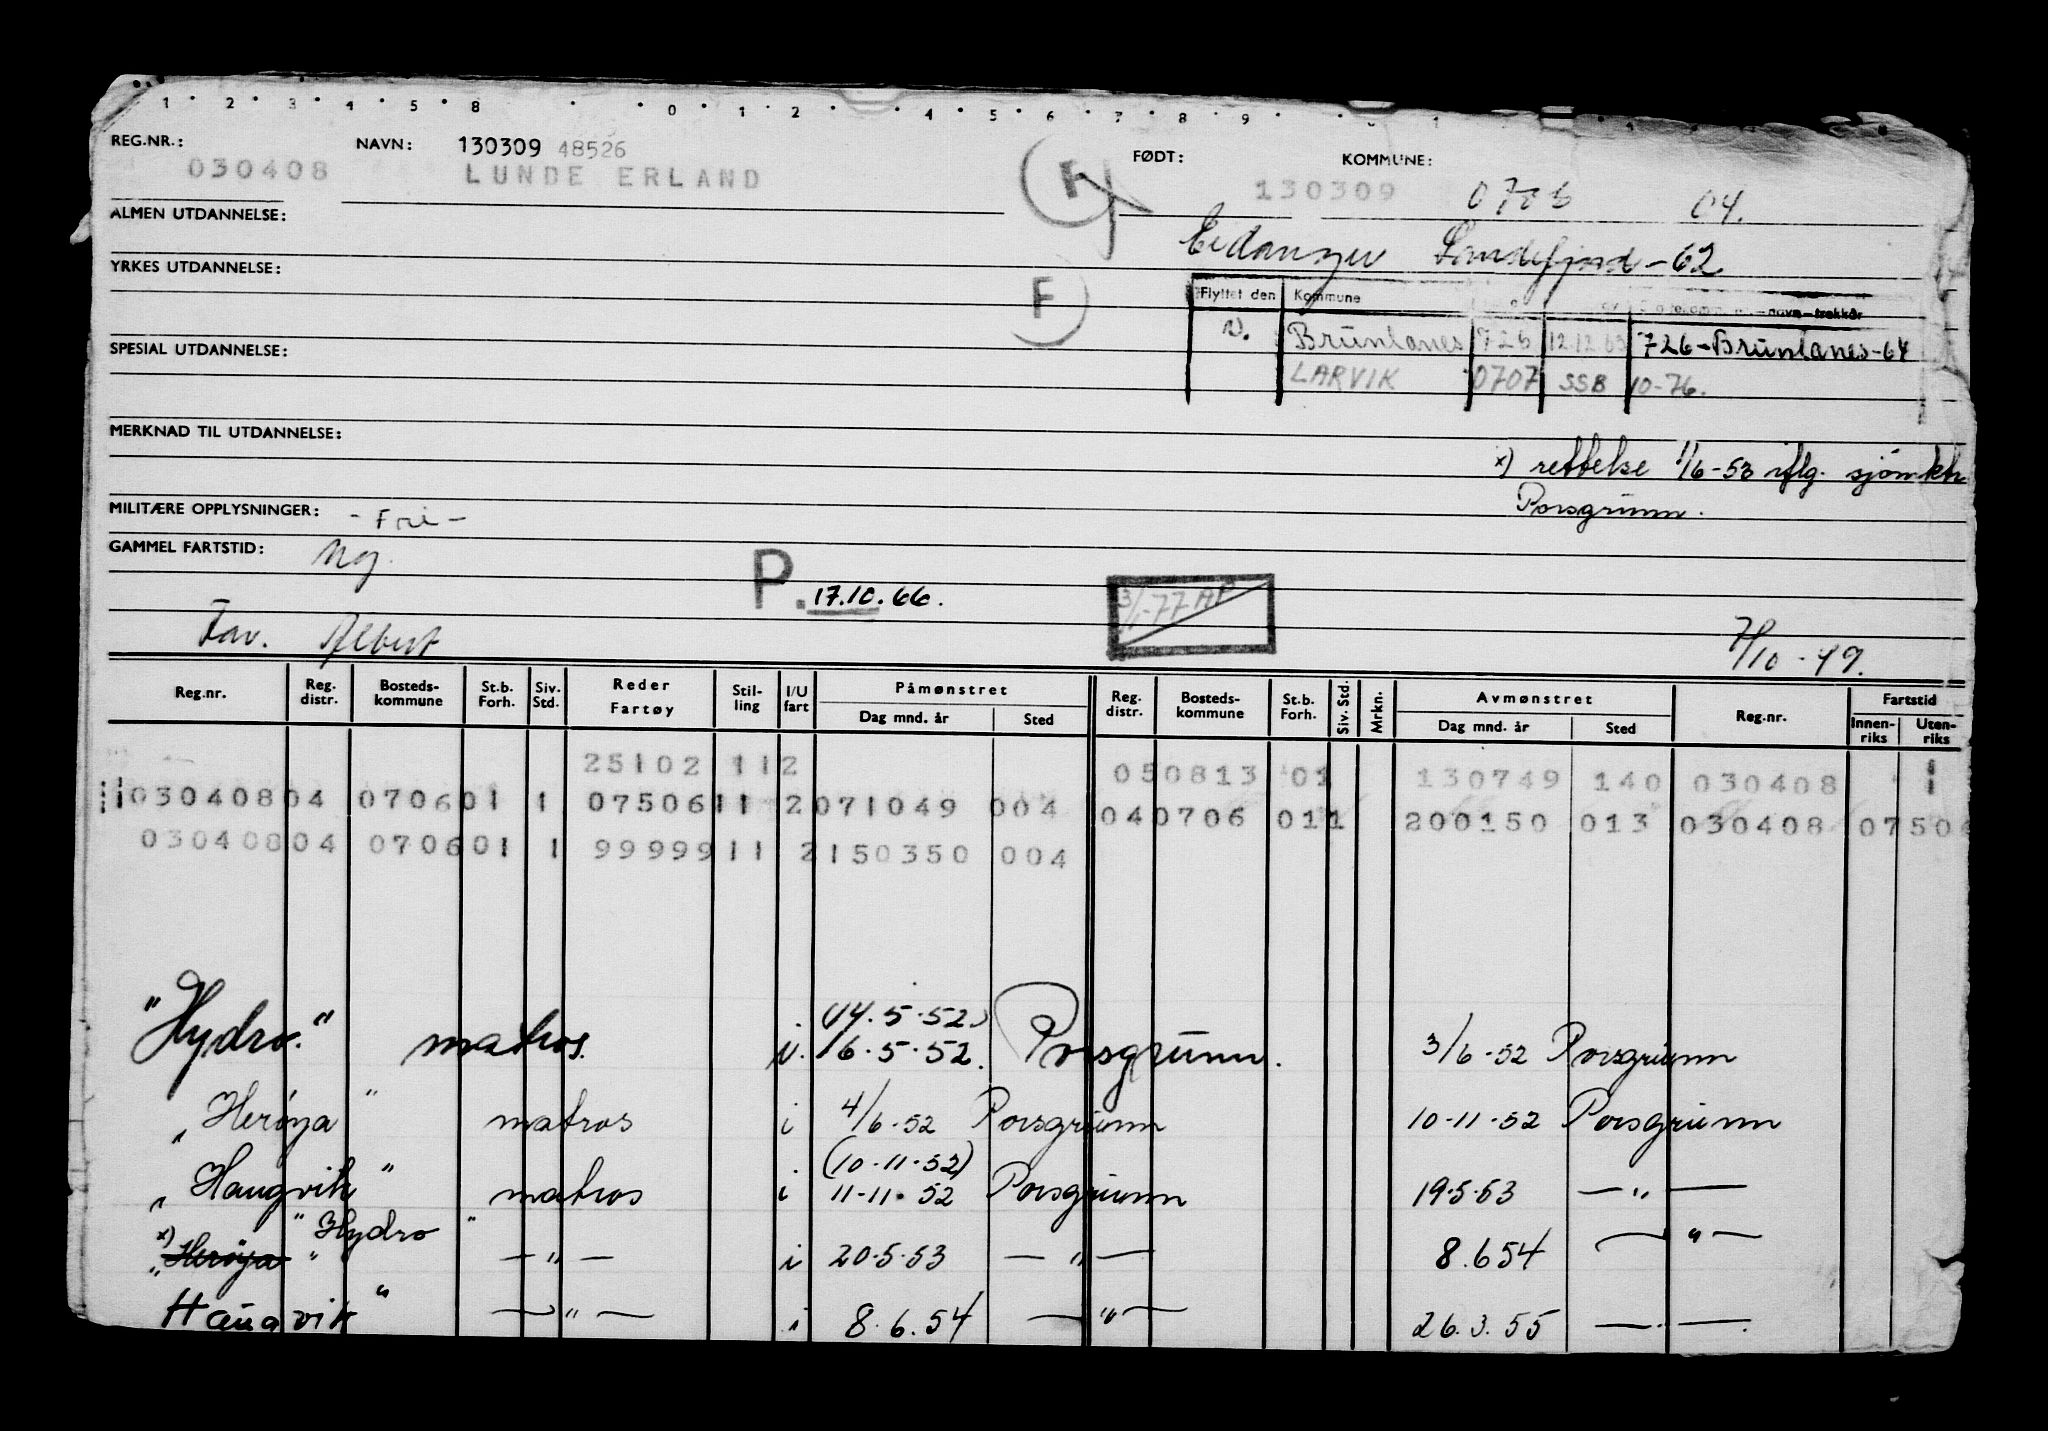 1 · 2 · 3 · 4 · 5 · 8 · · 0 · 1 · 2 · · 4 · 5 · 6 · 7 · 8 · 9 ·
REG.NR.: NAVN: 130309 48526 FØDT: KOMMUNE:
030408 LUNDE ERLAND H 130309 0706 04.
ALMEN UTDANNELSE:
Eidanger Sandefjord-62
YRKES UTDANNELSE: F
Flyttet den Kommune navn-trekkår
V. Brunlanes 726 12.12.63 726-Brunlanes-64
SPESIAL UTDANNELSE:
LARVIK 0707 SSB 10-76.
MERKNAD TIL UTDANNELSE:
x) rettelse 1/6-53 iflg. sjømktr
Porsgrunn.
MILITÆRE OPPLYSNINGER: - Fri -
GAMMEL FARTSTID: Ng.
P. 17.10.66. 3/1-77 AP
Fav. Albert 7/10-49.
Reg.nr. Reg. distr. Bosteds-kommune St.b. Forh. Siv. Std. Reder Fartøy Stil-ling I/U fart Påmønstret Dag mnd. år Sted Reg. distr. Bosteds-kommune St.b. Forh. Siv. Std. Mrkn. Avmønstret Dag mnd. år Sted Reg.nr. Fartstid Innen-riks Uten-riks
25102 11 2 050813 01 130749 140 030408
030408 04 0706 01 1 07506 11 2 071049 004 040706 01 1 200150 013 030408 07506
030408 04 0706 01 1 99999 11 2 150350 004
(14.5.52)
"Hydro." matros. i. 16.5.52. Porsgrunn. 3/6-52 Porsgrunn
"Herøya" matros i 4/6-52 Porsgrunn 10-11-52 Porsgrunn
(10-11-52)
"Haugvik" matros i 11-11-52 Porsgrunn 19.5.53 — " —
"Hydro"
x) "Herøya" — " — i 20.5.53 — " — 8.6 54 — " —
Haugvik" — " — i 8.6.54 — " — 26.3.55 — . —